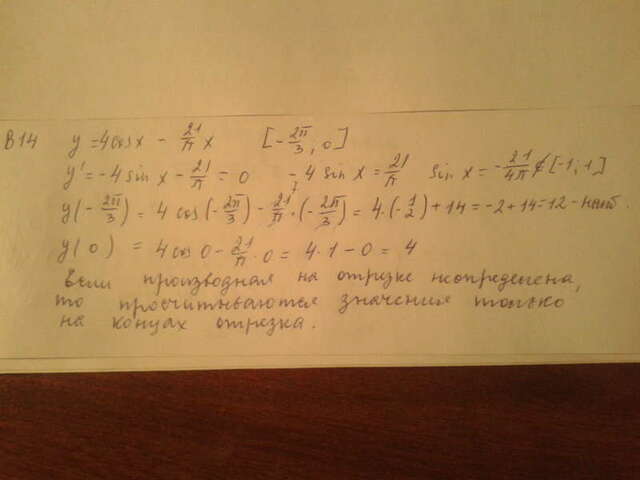 В14 y = 4cosx - 21/π x [-2π/3, 0]
y' = -4 sin x - 21/π = 0 -4 sin x = 21/π sin x = -21/4π ∉ [-1; 1]
y(-2π/3) = 4 cos(-2π/3) - 21/π · (-2π/3) = 4·(-1/2) + 14 = -2 + 14 = 12 - наиб.
y(0) = 4 cos 0 - 21/π · 0 = 4·1 - 0 = 4
Если производная на отрезке неопределена,
то просчитываются значения только
на концах отрезка.